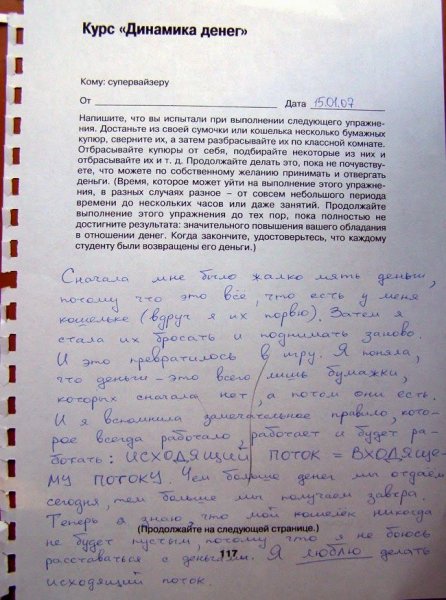 Курс «Динамика денег»
Кому: супервайзеру
От Дата 15.01.07
Напишите, что вы испытали при выполнении следующего упражне-
ния. Достаньте из своей сумочки или кошелька несколько бумажных
купюр, сверните их, а затем разбрасывайте их по классной комнате.
Отбрасывайте купюры от себя, подбирайте некоторые из них и
отбрасывайте их и т. д. Продолжайте делать это, пока не почувству-
ете, что можете по собственному желанию принимать и отвергать
деньги. (Время, которое может уйти на выполнение этого упражне-
ния, в разных случаях разное – от совсем небольшого периода
времени до нескольких часов или даже занятий. Продолжайте
выполнение этого упражнения до тех пор, пока полностью не
достигните результата: значительного повышения вашего обладания
в отношении денег. Когда закончите, удостоверьтесь, что каждому
студенту были возвращены его деньги.)
Сначала мне было жалко мять деньги,
потому что это всё, что есть у меня
кошельке (вдруг я их порвю). Затем я
стала их бросать и поднимать заново.
И это превратилось в игру. Я поняла,
что деньги – это всего лишь бумажки,
которых сначала нет, а потом они есть.
И я вспомнила замечательное правило, кото-
рое всегда работало, работает и будет ра-
ботать: ИСХОДЯЩИЙ ПОТОК = ВХОДЯЩЕ-
МУ ПОТОКУ. Чем больше денег мы отдаем
сегодня, тем больше мы получаем завтра.
Теперь я знаю, что мой кошелёк никогда
(Продолжайте на следующей странице.)
не будет пустым, потому что я не боюсь
117
расставаться с деньгами. Я люблю делать
исходящий поток.